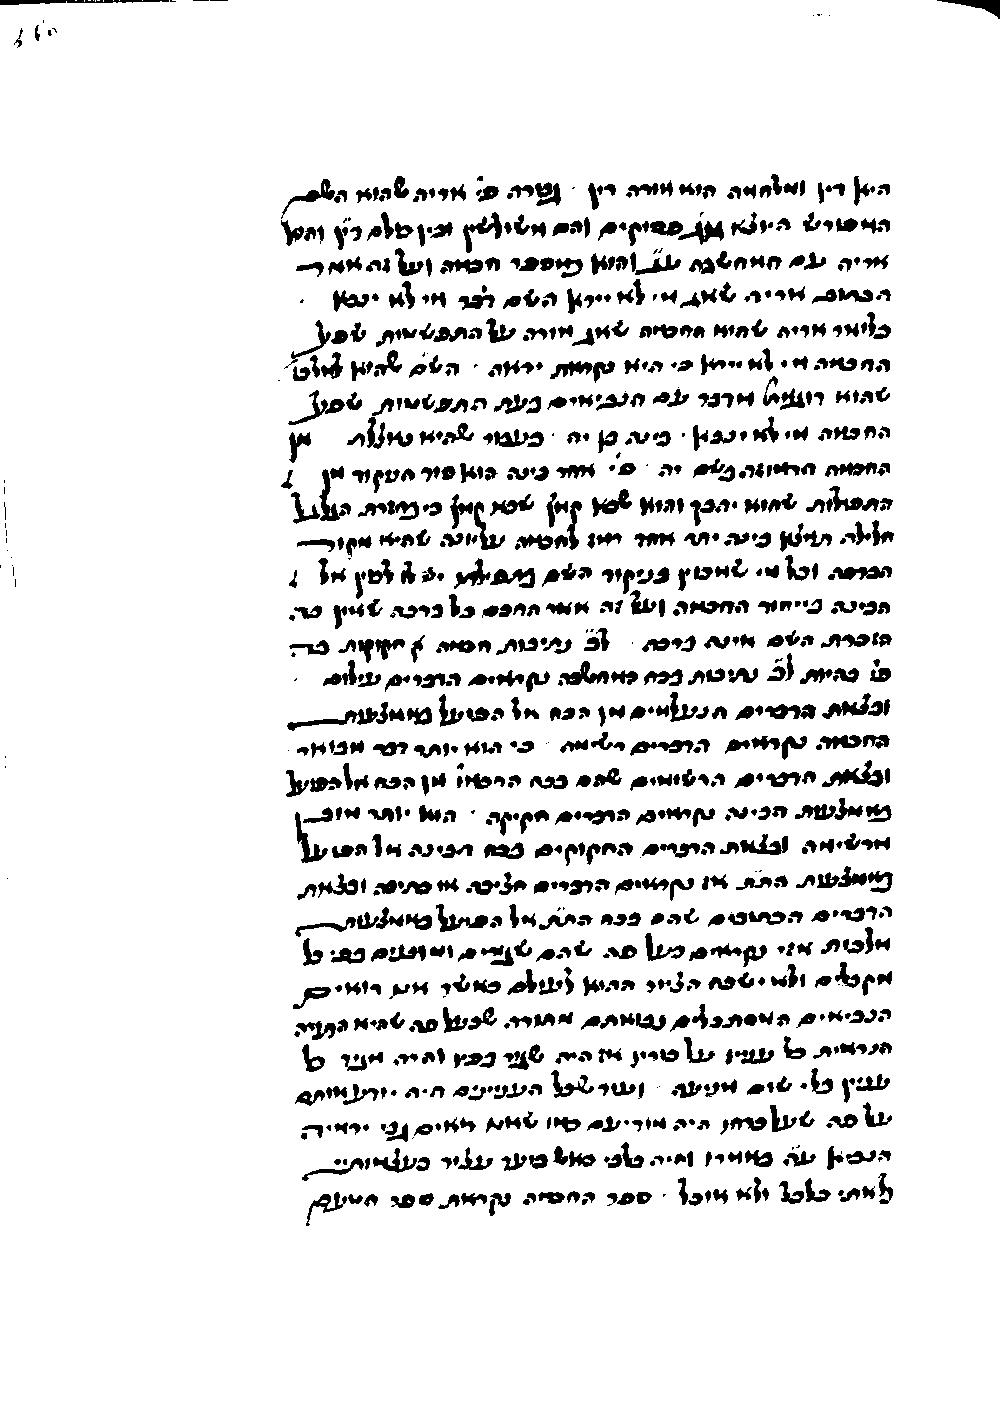 היא דין ומלחמה הוא מורה דין · גבורה פי' אריה שהוא השם
המפורש היוצא מג' פסוקים והם משולשין ובין כולם ר"ץ והכל
אריה עם המחשבה עב והוא במספר חכמה ועל זה אמר
הכתוב אריה שאג מי לא יירא השם דבר מי לא ינבא ·
כלומר אריה שהוא החכמה שאג מורה על התפשטות שפע
החכמה מי לא יירא כי היא נקראת יראה · השם שהיא
שהוא מדבר עם הנביאים בעת התפשטות שפע
החכמה מי לא ינבא · בינה בן יה · בעבור שהיא נאצלת מן
החכמה הרמוזה בשם יה · פי' אחר בינה הוא סוד העקוד מן
התפלות שהוא יהבך והוא שבא קמץ שבא קמץ כי בחזרת הגלגל
חלילה תמצא בינה יחד אחר רמז לחכמה עליונה שהיא מקור
הברכה וכל מי שמכוין בניקוד השם בתפילתו לכוין אל
הבינה בייחוד החכמה ועל זה אמר החכם כל ברכה שאין בה
הזכרת השם אינה ברכה · ל"ב נתיבות חכמה חקוקות בה
פי' בהיות ל"ב נתיבות בכח במחשבה נקראים הדברים עילום ·
ובצאת הדברים הנעלמים מן הכח אל הפועל באמצעות
החכמה נקראים הדברים רשימה · כי הוא יותר דבר מבואר
ובצאת הדברים הרשומים שהם בכח הדכמו מן הכח אל הפועל
באמצעות הבינה נקראים הדברים חקיקה · הוא יותר מובן
מרשימה ובצאת הדברים החקוקים בכח הבינה אל הפועל
באמצעות הת"ת אז נקראים הדברים חציבה או כתיבה ובצאת
הדברים הכתובים שהם בכח הת"ת אל הפועל באמצעות
מלכות אזי נקראים בעל פה שהם שגורים ומזומנים בפי כל
מקבלים ולא ישכח הציור ההוא לעולם כאשר אנו רואים
הנביאים המסתכלים נבואתם מתורה שבעל פה שהיא העטרה
הנראית כל ענין על בורין אז היה שגור בפיו והיה מגיד כל
ענין בלי שום מניעה · ועוד שכל הענינים היה יודע אותם
על פה שעל כרחו היה מודיעם כמו שאנו רואים גבי ירמיה
הנביא ע"ה באומרו והיה בלבי כאש בוערת עצור בעצמותי
נלאתי כלכל ולא אוכל · ספר החכמה נקראת ספר